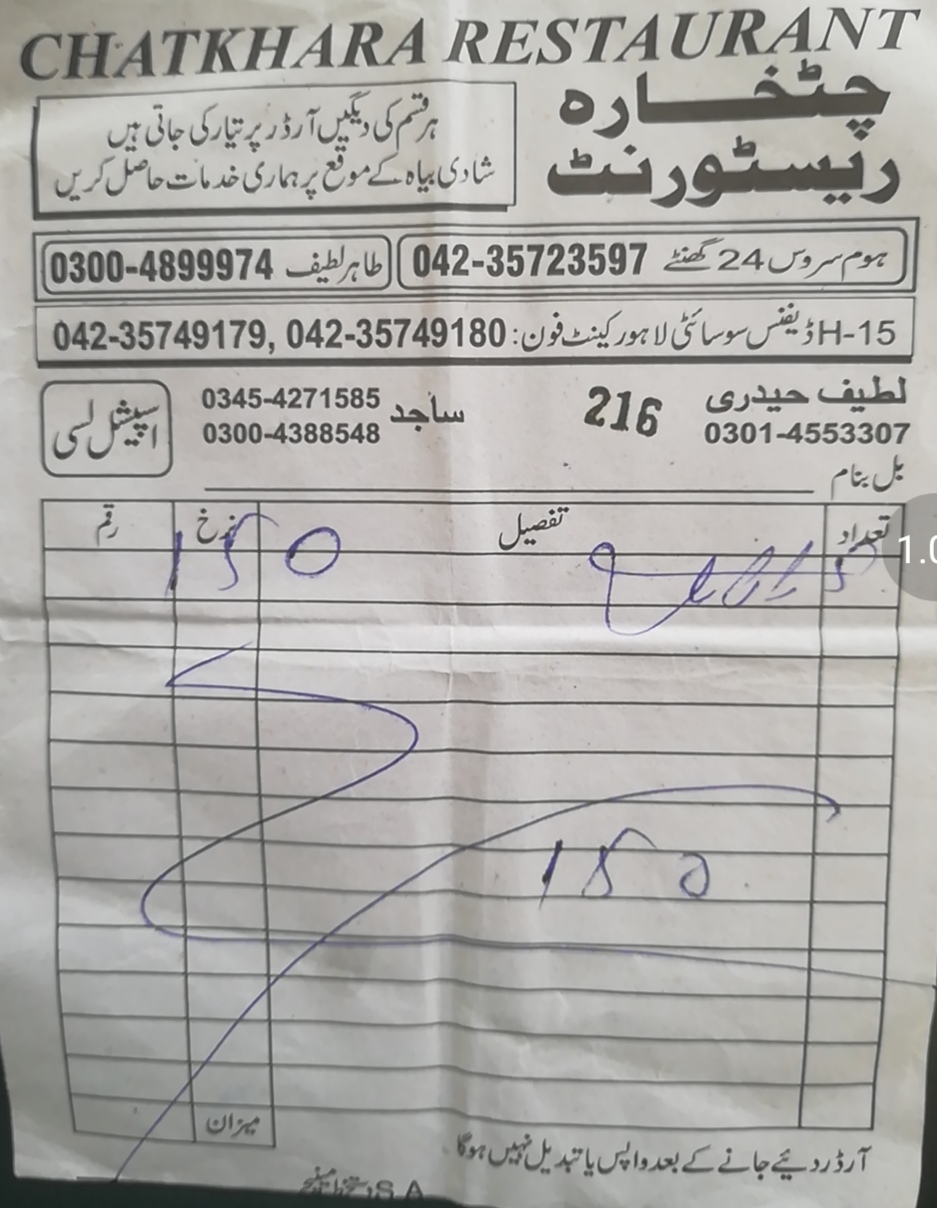 CHATKHARA RESTAURANT
چٹخارہ
ریسٹورنٹ
ہر قسم کی دیگیں آرڈر پر تیار کی جاتی ہیں
شادی بیاہ کے موقع پر ہماری خدمات حاصل کریں
ہوم سروس 24 گھنٹے 042-35723597
طاہر لطیف 0300-4899974
15-H ڈیفنس سوسائٹی لاہور کینٹ فون: 042-35749180 ,042-35749179
لطیف حیدری
0301-4553307
216
ساجد
0345-4271585
0300-4388548
اسپیشل لسی
بل بنام
تعداد تفصیل نرخ رقم
150
150
میزان
آرڈر دیئے جانے کے بعد واپس یا تبدیل نہیں ہوگا
1.0